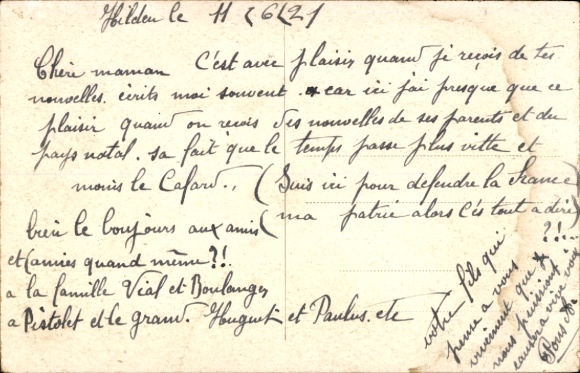 Hilden le 11 6 21
Chéri maman C'est avec plaisir quand je reçois de tes
nouvelles. écrits moi souvent. car ici j'ai presque que ce
plaisir quand on recois des nouvelles de ses parents et du
pays natal. sa fait que le temps passe plus vitte et
moins le Cafard.. (Suis ici pour defendre la France
ma patrie alors c'és tout a dire)
?!..
bien le bonjours aux amis
et (amies quand même?!
a la famille Vial et Boulanger
a Pistolet et le grand. Huguet et Paulus. etc
votre fils qui
pense a vous
vivement que
nous puissions
causer a vive voix
Pons